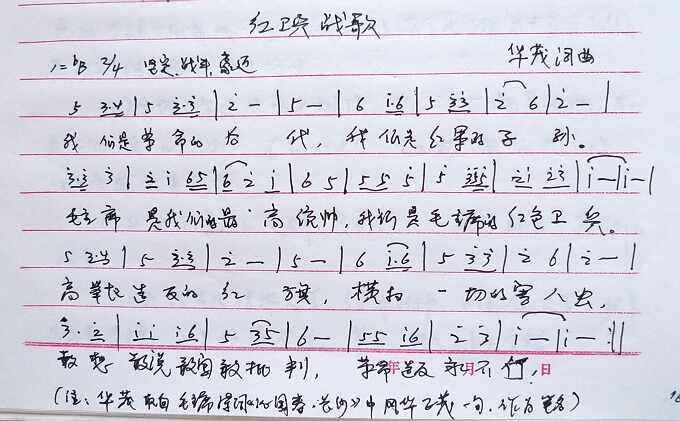 红卫兵战歌
1=♭B 2/4 坚定、战斗、豪迈 华茂词曲
5 3·4 | 5 3·3 | 2 — | 5 — | 6 i·6 | 5 33 | 2 6 | 2 — |
我们是革命的后代，我们是红军的子孙。
3·3 3 | 2 i 65 | 6 2 i | 6 5 | 55 5 | 5 355 | 2i 23 | i — | i — |
毛主席是我们的最高统帅，我们是毛主席的红色卫兵。
5 3·4 | 5 3·3 | 2 — | 5 — | 6 i·6 | 5 33 | 2 6 | 2 — |
高举起造反的红旗，横扫一切的害人虫，
3· 2 | ii i6 | 5 35 | 6 — | 55 i6 | 2 3 | i — | i — :||
敢想敢说敢闯敢批判，革命造反永不停！
年 月 日
(注：华茂取自毛主席诗词《沁园春·长沙》中风华正茂一句，作为笔名)